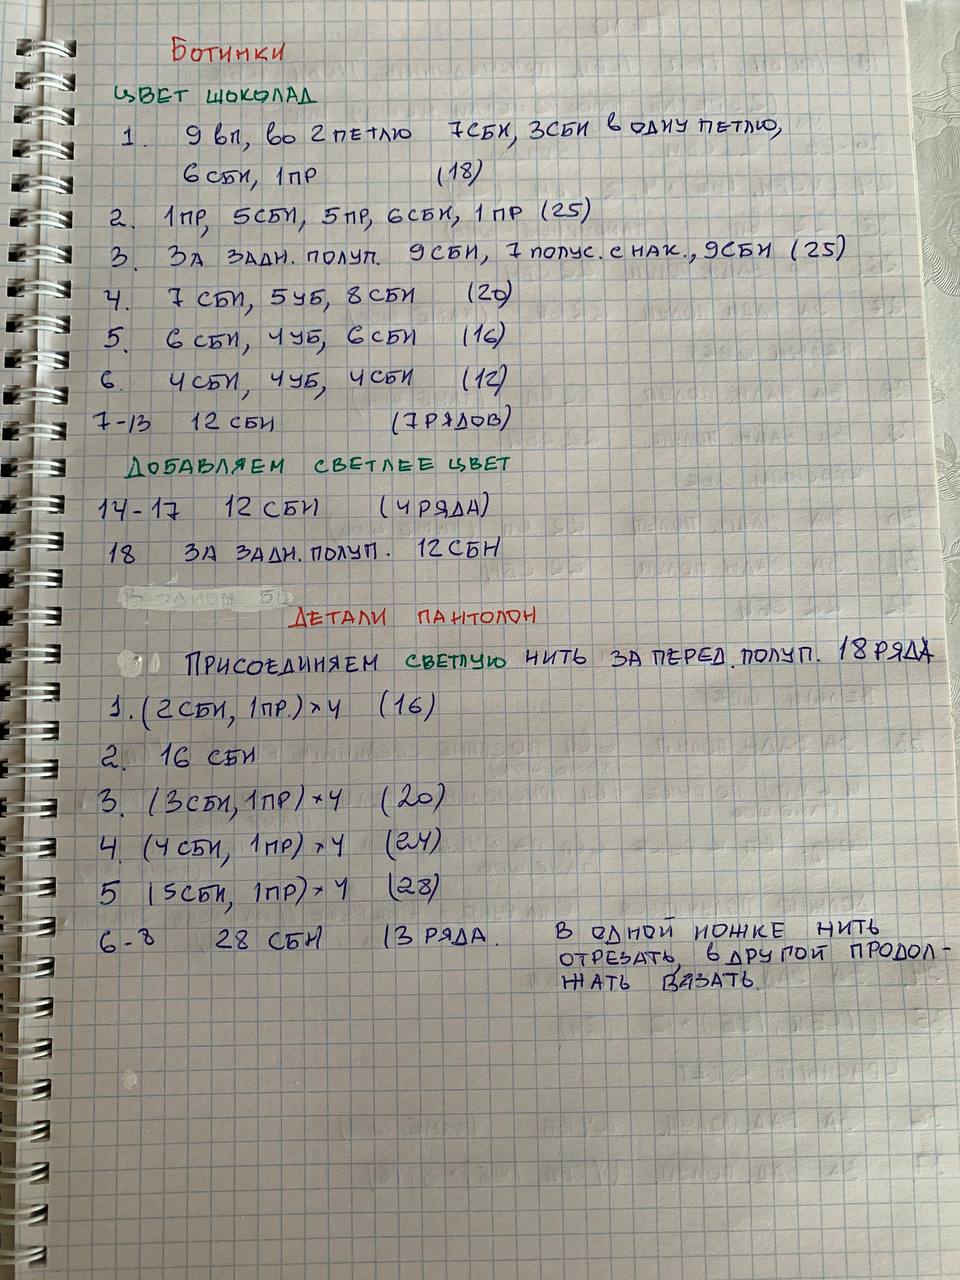 Ботинки
ЦВЕТ ШОКОЛАД
1. 9 вп, во 2 петлю 7 СБН, 3 СБН в одну петлю,
6 СБН, 1 ПР (18)
2. 1 ПР, 5 СБН, 5 ПР, 6 СБН, 1 ПР (25)
3. ЗА ЗАДН. ПОЛУП. 9 СБН, 7 ПОЛУС. С НАК., 9 СБН (25)
4. 7 СБН, 5 УБ, 8 СБН (20)
5. 6 СБН, 4 УБ, 6 СБН (16)
6. 4 СБН, 4 УБ, 4 СБН (12)
7-13 12 СБН (7 РЯДОВ)
ДОБАВЛЯЕМ СВЕТЛЕЕ ЦВЕТ
14-17 12 СБН (4 РЯДА)
18 ЗА ЗАДН. ПОЛУП. 12 СБН
ДЕТАЛИ ПАНТОЛОН
ПРИСОЕДИНЯЕМ СВЕТЛУЮ НИТЬ ЗА ПЕРЕД. ПОЛУП. 18 РЯДА
1. (2 СБН, 1 ПР.) × 4 (16)
2. 16 СБН
3. (3 СБН, 1 ПР) × 4 (20)
4. (4 СБН, 1 ПР) × 4 (24)
5 (5 СБН, 1 ПР) × 4 (28)
6-8 28 СБН (3 РЯДА.
В ОДНОЙ НОЖКЕ НИТЬ
ОТРЕЗАТЬ, В ДРУГОЙ ПРОДОЛ-
ЖАТЬ ВЯЗАТЬ.